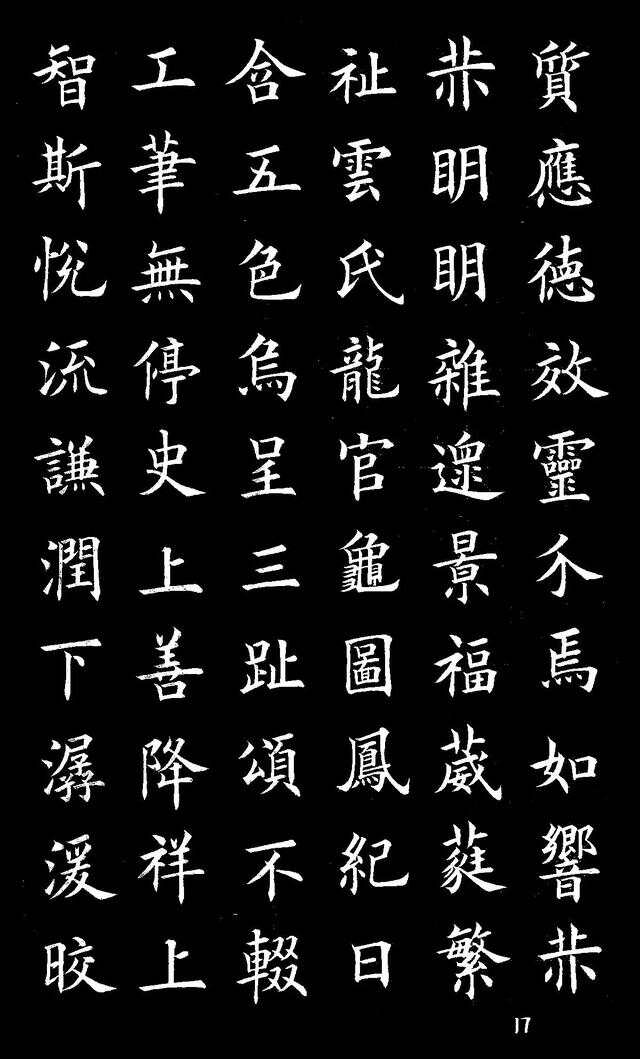 質應德效靈介焉如響赫
赫明明雜遝景福葳蕤繁
祉雲氏龍官龜圖鳳紀日
含五色烏呈三趾頌不輟
工筆無停史上善降祥上
智斯悅流謙潤下潺湲晈
17